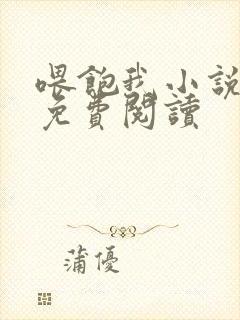 喂飽我 小說
免費閱讀
蒲優